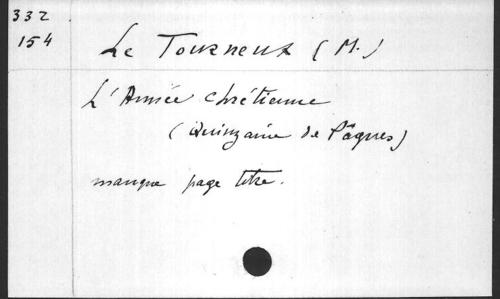 332
154
Le Tourneux (M.)
L'Année chrétienne
(Quinzaine de Pâques)
manque page titre.